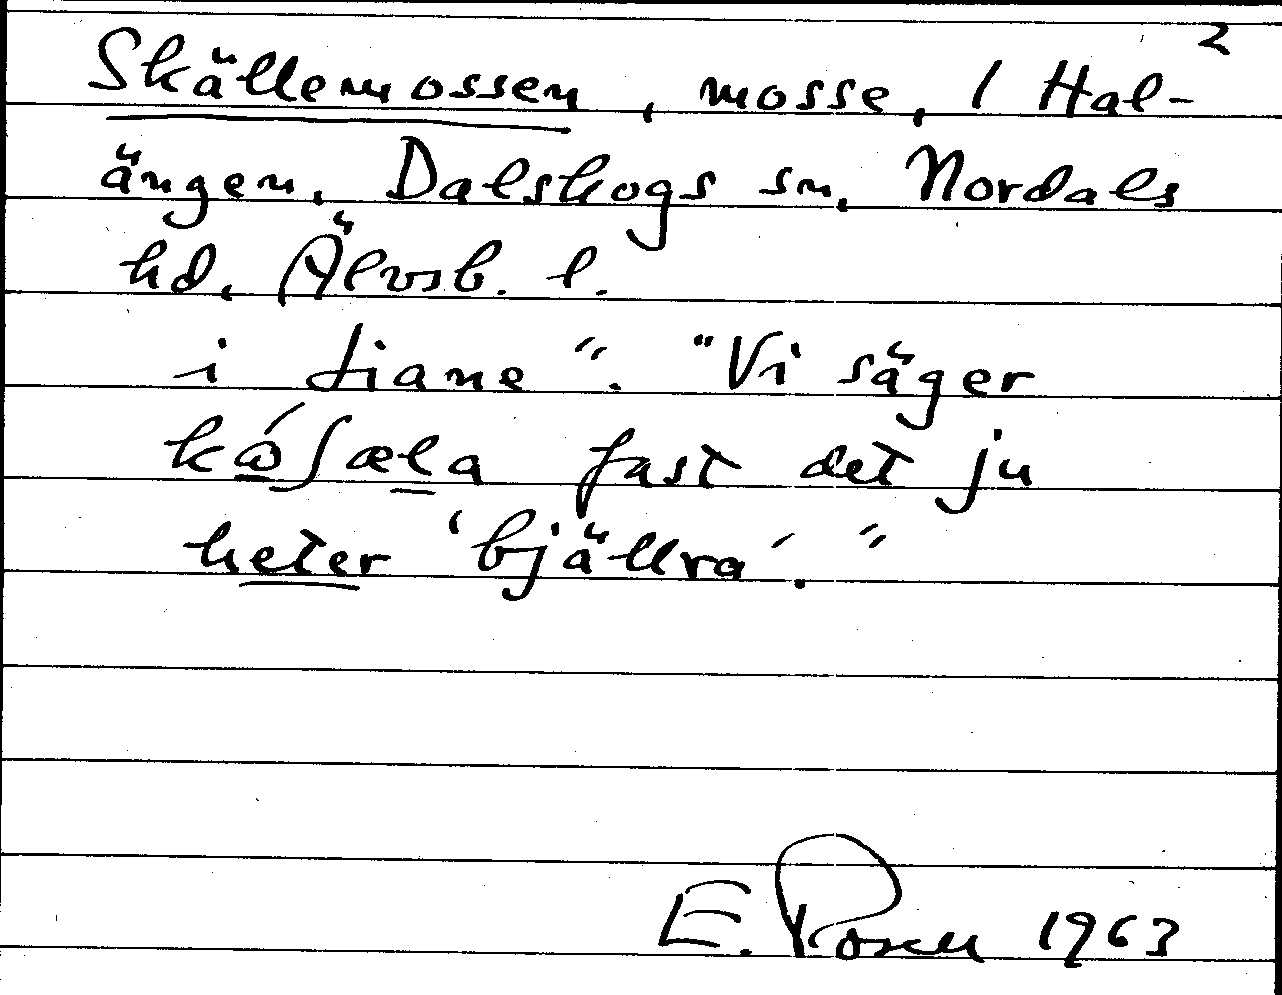 2
Skällemossen, mosse, 1 Hal-
ängen, Dalskogs sn, Nordals
hd, Älvsb. l.
i tiane". "Vi säger
kɷ́ʃæla fast det ju
heter 'bjällra'."
E. Rosen 1963